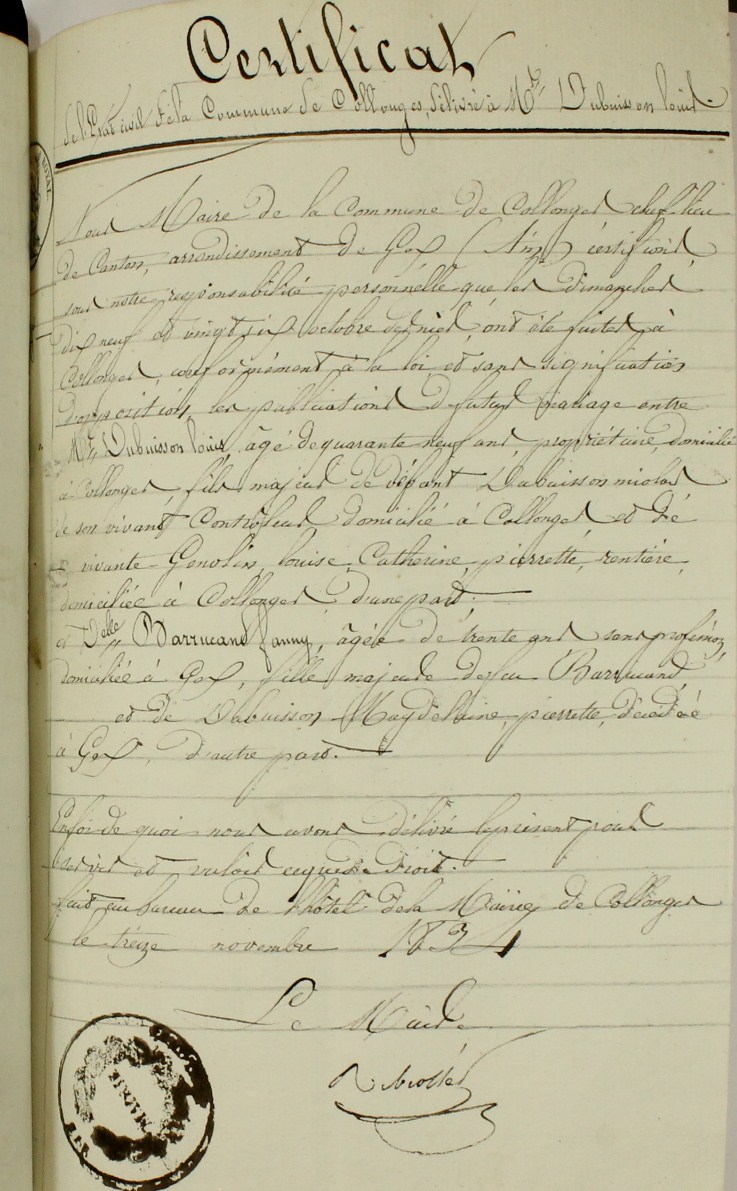 Certificat
de l'Etat civil de la Commune de Collonges, délivré à Mr. Dubuisson louis.
Nous Maire de la Commune de Collonges chef lieu
de Canton, arrondissement de Gex (Ain) certifions
sous notre responsabilité personnelle que les dimanches
dix neuf et vingt six octobre dernier, ont été faites à
Collonges, conformément à la loi et sans signification
d'opposition, les publications de futur mariage entre
Mr. Dubuisson louis, âgé de quarante neuf ans, propriétaire, domicilié
à Collonges, fils majeur de défunt Dubuisson nicolas
de son vivant Controleur domicilié à Collonges, et de
vivante Genolin, louise, Catherine, pierrette, rentière,
domiciliée à Collonges d'une part.
et Delle Barrucand fanny, âgée de trente ans sans profession,
domiciliée à Gex, fille majeure de feu Barrucand,
et de Dubuisson Magdelaine, pierrette, décédée
à Gex, d'autre part.
En foi de quoi nous avons délivré le présent pour
servir et valoir ce que de droit.
fait au bureau de l'hôtel de la Mairie de Collonges
le treize novembre 1834
Le Maire